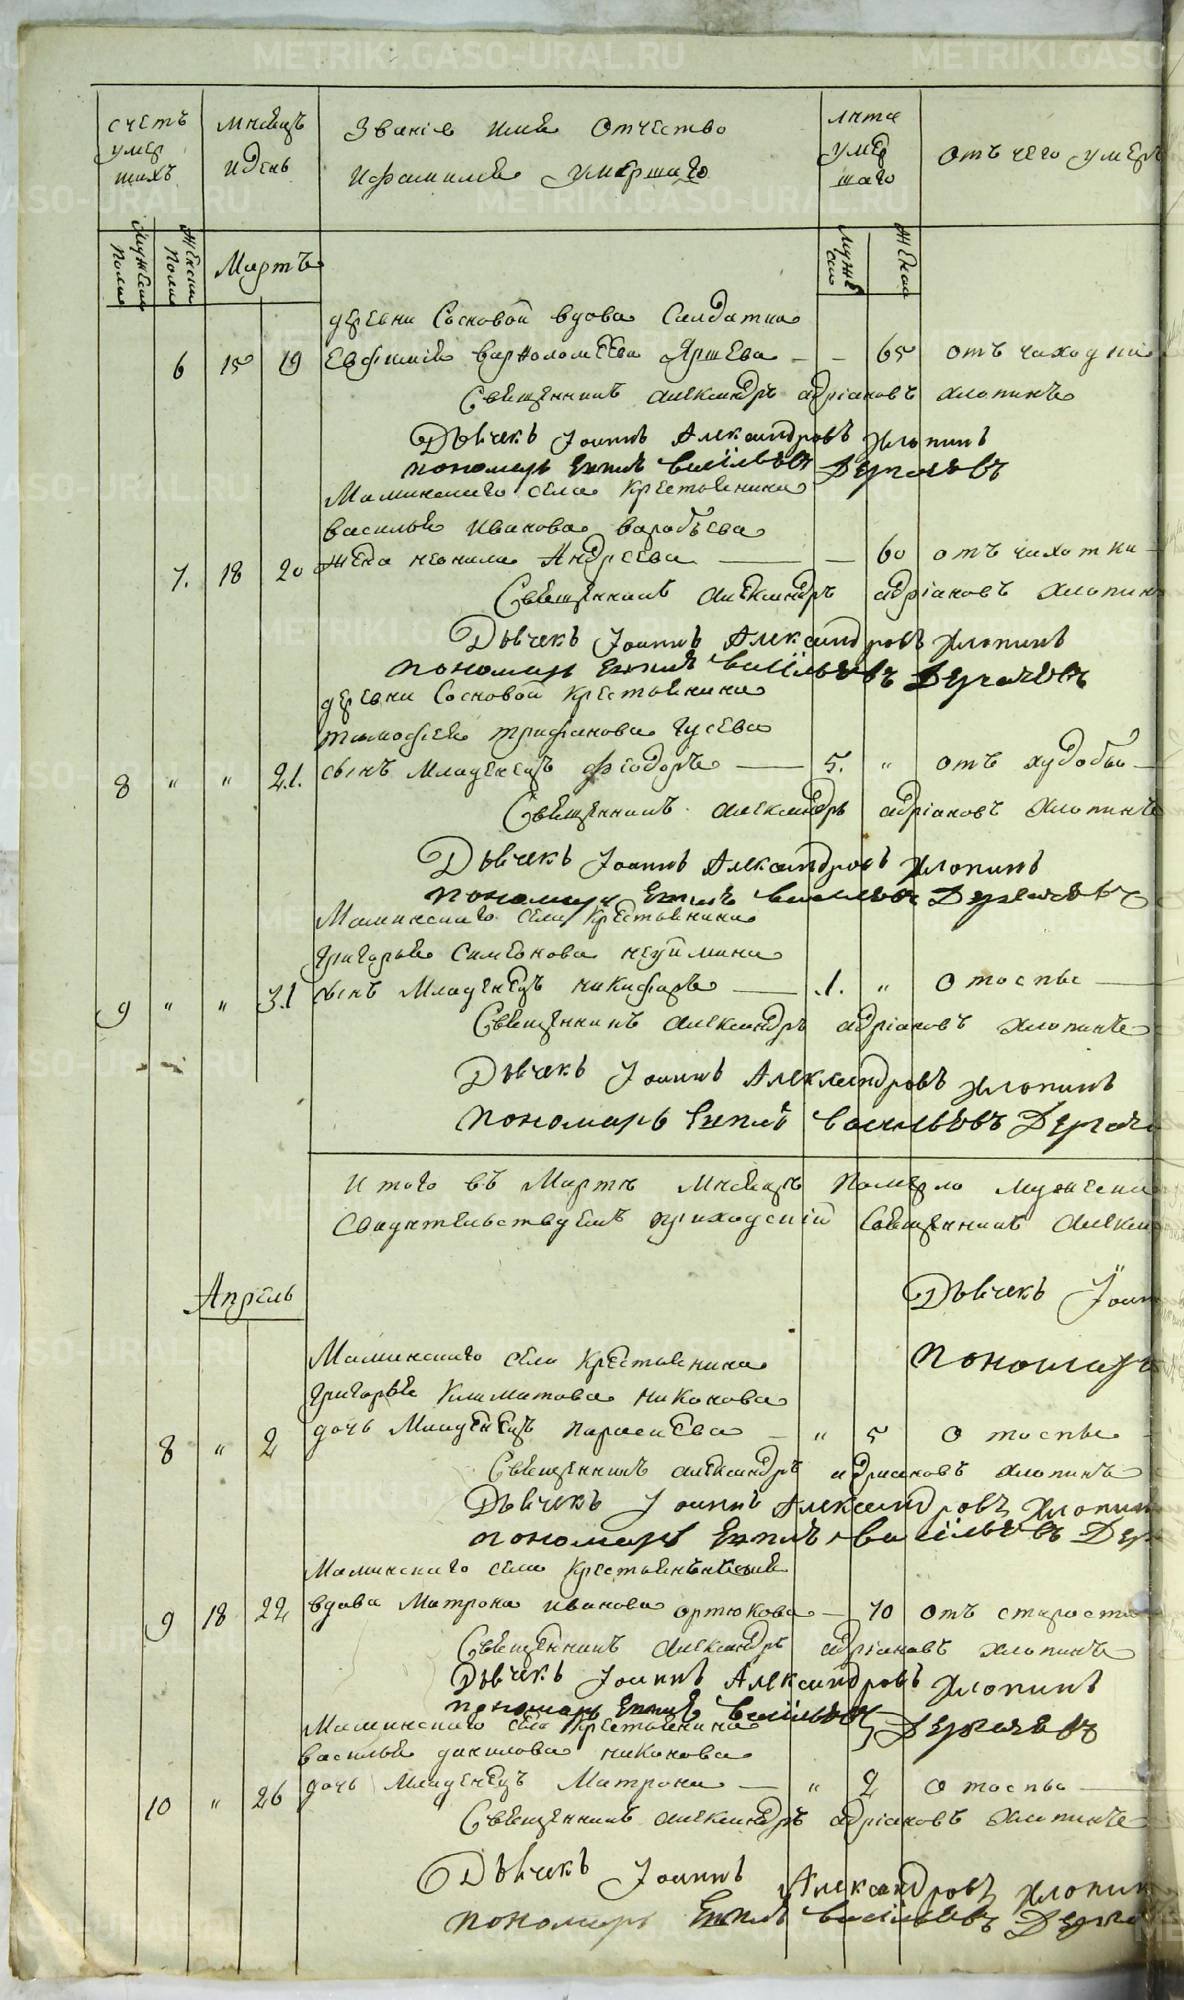 METRIKI.GASO-URAL.RU
счетъ умер шихъ
мѣсяцъ и день
Званіе имя Отчество
и фамилія умершаго
лѣта умер шаго
отъ чего умеръ
Мужеска Полу
Женска Полу
Мартъ
Мужеска
Женска
деревни Сосновой вдова Салдатка
6 15 19 Евфимія варѳоломѣева Яршева — — 65 отъ чахотки
Священникъ Александръ адріановъ Хлопинъ
Дьячекъ Іоаннъ Александровъ Хлопинъ
пономарь васільевъ Дергачевъ
Маминскаго села Крестьянина
василья Иванова варобьева
7. 18 20 жена неонила Андреева — — 60 отъ чахотки
Священникъ Александръ адріановъ Хлопинъ
Дьячекъ Іоаннъ Александровъ Хлопинъ
пономарь васільевъ Дергачевъ
деревни Сосновой Крестьянина
тимофея трифанова гусева
8 " " 21. сынъ Младенецъ Феодоръ — 5. " отъ худобы
Священникъ Александръ адріановъ Хлопинъ
Дьячекъ Іоаннъ Александровъ Хлопинъ
пономарь васильевъ Дергачевъ
Маминскаго села Крестьянина
григорья Симеонова неуймина
9 " " 31 сынъ Младенецъ никифоръ — .1. " О тоспы
Священникъ Александръ адріановъ Хлопинъ
Дьячекъ Іоаннъ Александровъ Хлопинъ
пономарь васильевъ Дергач
Итого въ Мартѣ Мѣсяцѣ Померло мужеска
Свидѣтельствуемъ приходскій Священникъ Алекса
Дьячекъ Іоан
пономарь
Апрель
Маминскаго села Крестьянина
григорья Климатова никонова
8 " 2 дочь Младенецъ парасиева — " 5 О тоспы
Священникъ Александръ адриановъ Хлопинъ
Дьячекъ Іоаннъ Александровъ Хлопинъ
пономарь васільевъ Дер
Маминскаго села
9 18 22 вдова Матрона иванова ортюкова — 70 отъ старости
Священникъ Александръ адріановъ Хлопинъ
Дьячекъ Іоаннъ Александровъ Хлопинъ
пономарь васільевъ Дергачевъ
Маминскаго села Крестьянина
василья данилова никонова
10 " 26 дочь Младенецъ Матрона — " 2 О тоспы
Священникъ Александръ адріановъ Хлопинъ
Дьячекъ Іоаннъ Александровъ Хлопин
пономарь васильевъ Дергач